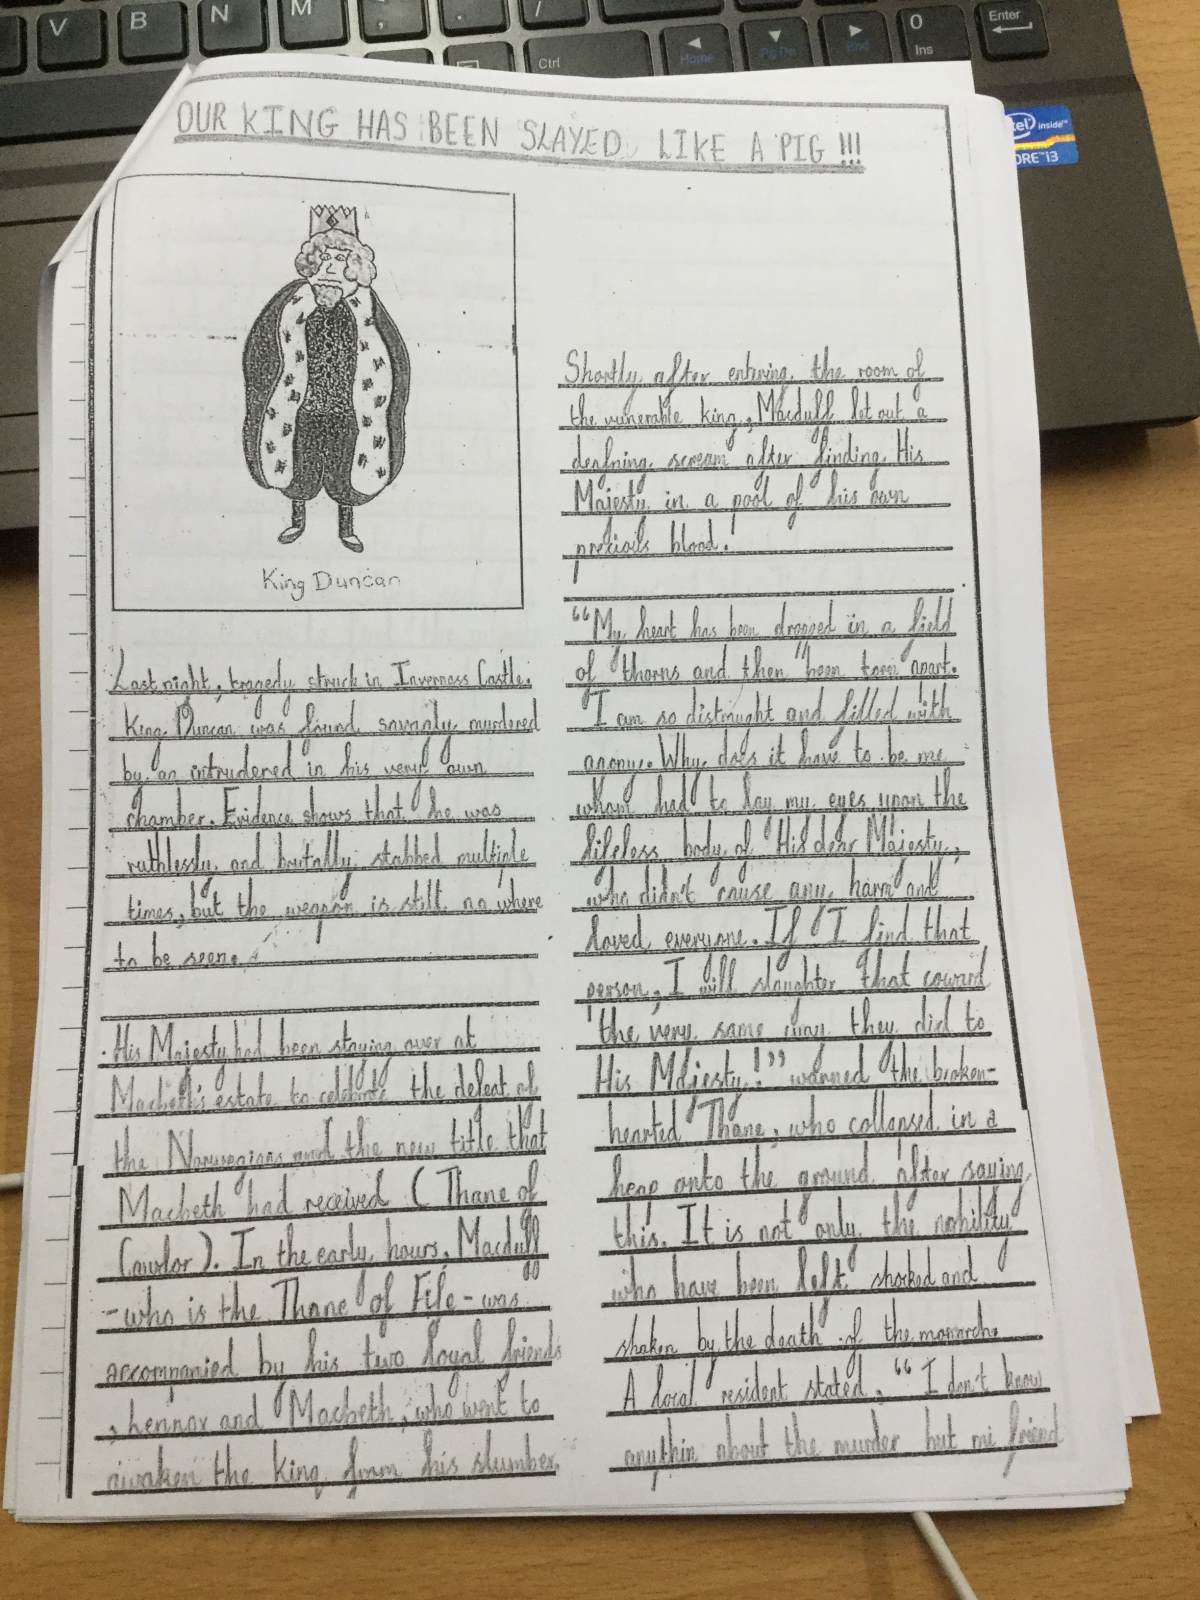 V
B
N
M
;
,
.
/
Ctrl
Home
Pg Dn
End
0
Ins
Enter
intel inside
CORE i3
OUR KING HAS BEEN SLAYED LIKE A PIG !!!
King Duncan
Last night, tragedy struck in Inverness Castle.
King Duncan was found savagly murdered
by an intrudered in his very own
chamber. Evidence shows that he was
ruthlessly and brutally stabbed multiple
times, but the weapon is still no where
to be seen.
His Majesty had been staying over at
Macbeth's estate to celebrate the defeat of
the Norwegians and the new title that
Macbeth had received (Thane of
Cawdor). In the early hours, Macduff
-who is the Thane of Fife- was
accompanied by his two loyal friends
, Lennox and Macbeth, who went to
awaken the king from his slumber.
Shortly after entering the room of
the vunerable king, Macduff let out a
deafning scream after finding His
Majesty in a pool of his own
precious blood.
“My heart has been dropped in a field
of thorns and then been torn apart.
I am so distraught and filled with
anony. Why does it have to be me
whom had to lay my eyes upon the
lifeless body of His dear Majesty,
who didn't cause any harm and
loved everyone. If I find that
person, I will slaughter that coward
the very same way they did to
His Majesty!” warned the broken-
hearted Thane, who collapsed in a
heap onto the ground after saying
this. It is not only the nobility
who have been left shocked and
shaken by the death of the monarch.
A local resident stated, “I don't know
anythin about the murder but mi friend